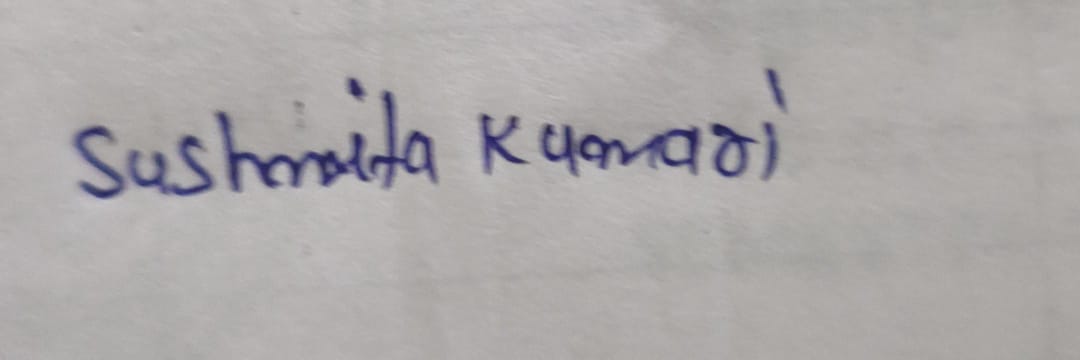 Sushmita Kumari